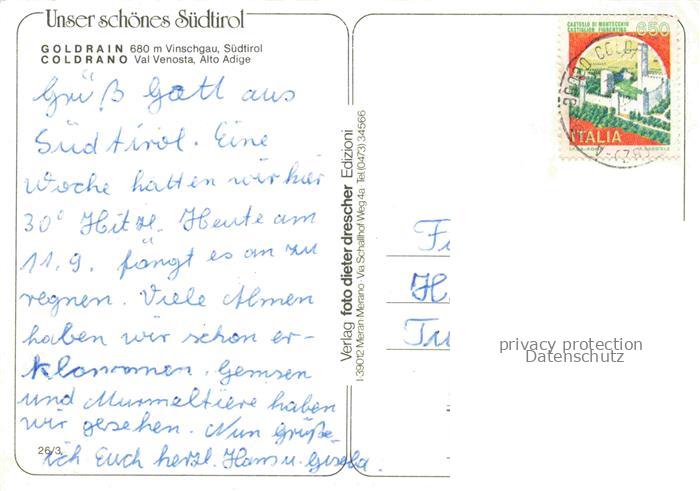 Unser schönes Südtirol
GOLDRAIN 680 m Vinschgau, Südtirol
COLDRANO Val Venosta, Alto Adige
Grüß Gott aus
Südtirol. Eine
Woche hatten wir hier
30° Hitze. Heute am
11.9. fängt es an zu
regnen. Viele Almen
haben wir schon er-
klommen. Gemsen
und Murmeltiere haben
wir gesehen. Nun grüße
ich Euch herzl. Hans u. Gisela.
26/3
Verlag foto dieter drescher Edizioni
I-39012 Meran Merano · Via Schallhof Weg 4a · Tel. (0473) 34566
CASTELLO DI MONTECCHIO
CASTIGLION FIORENTINO
650
ITALIA
F
H
Tu
privacy protection
Datenschutz